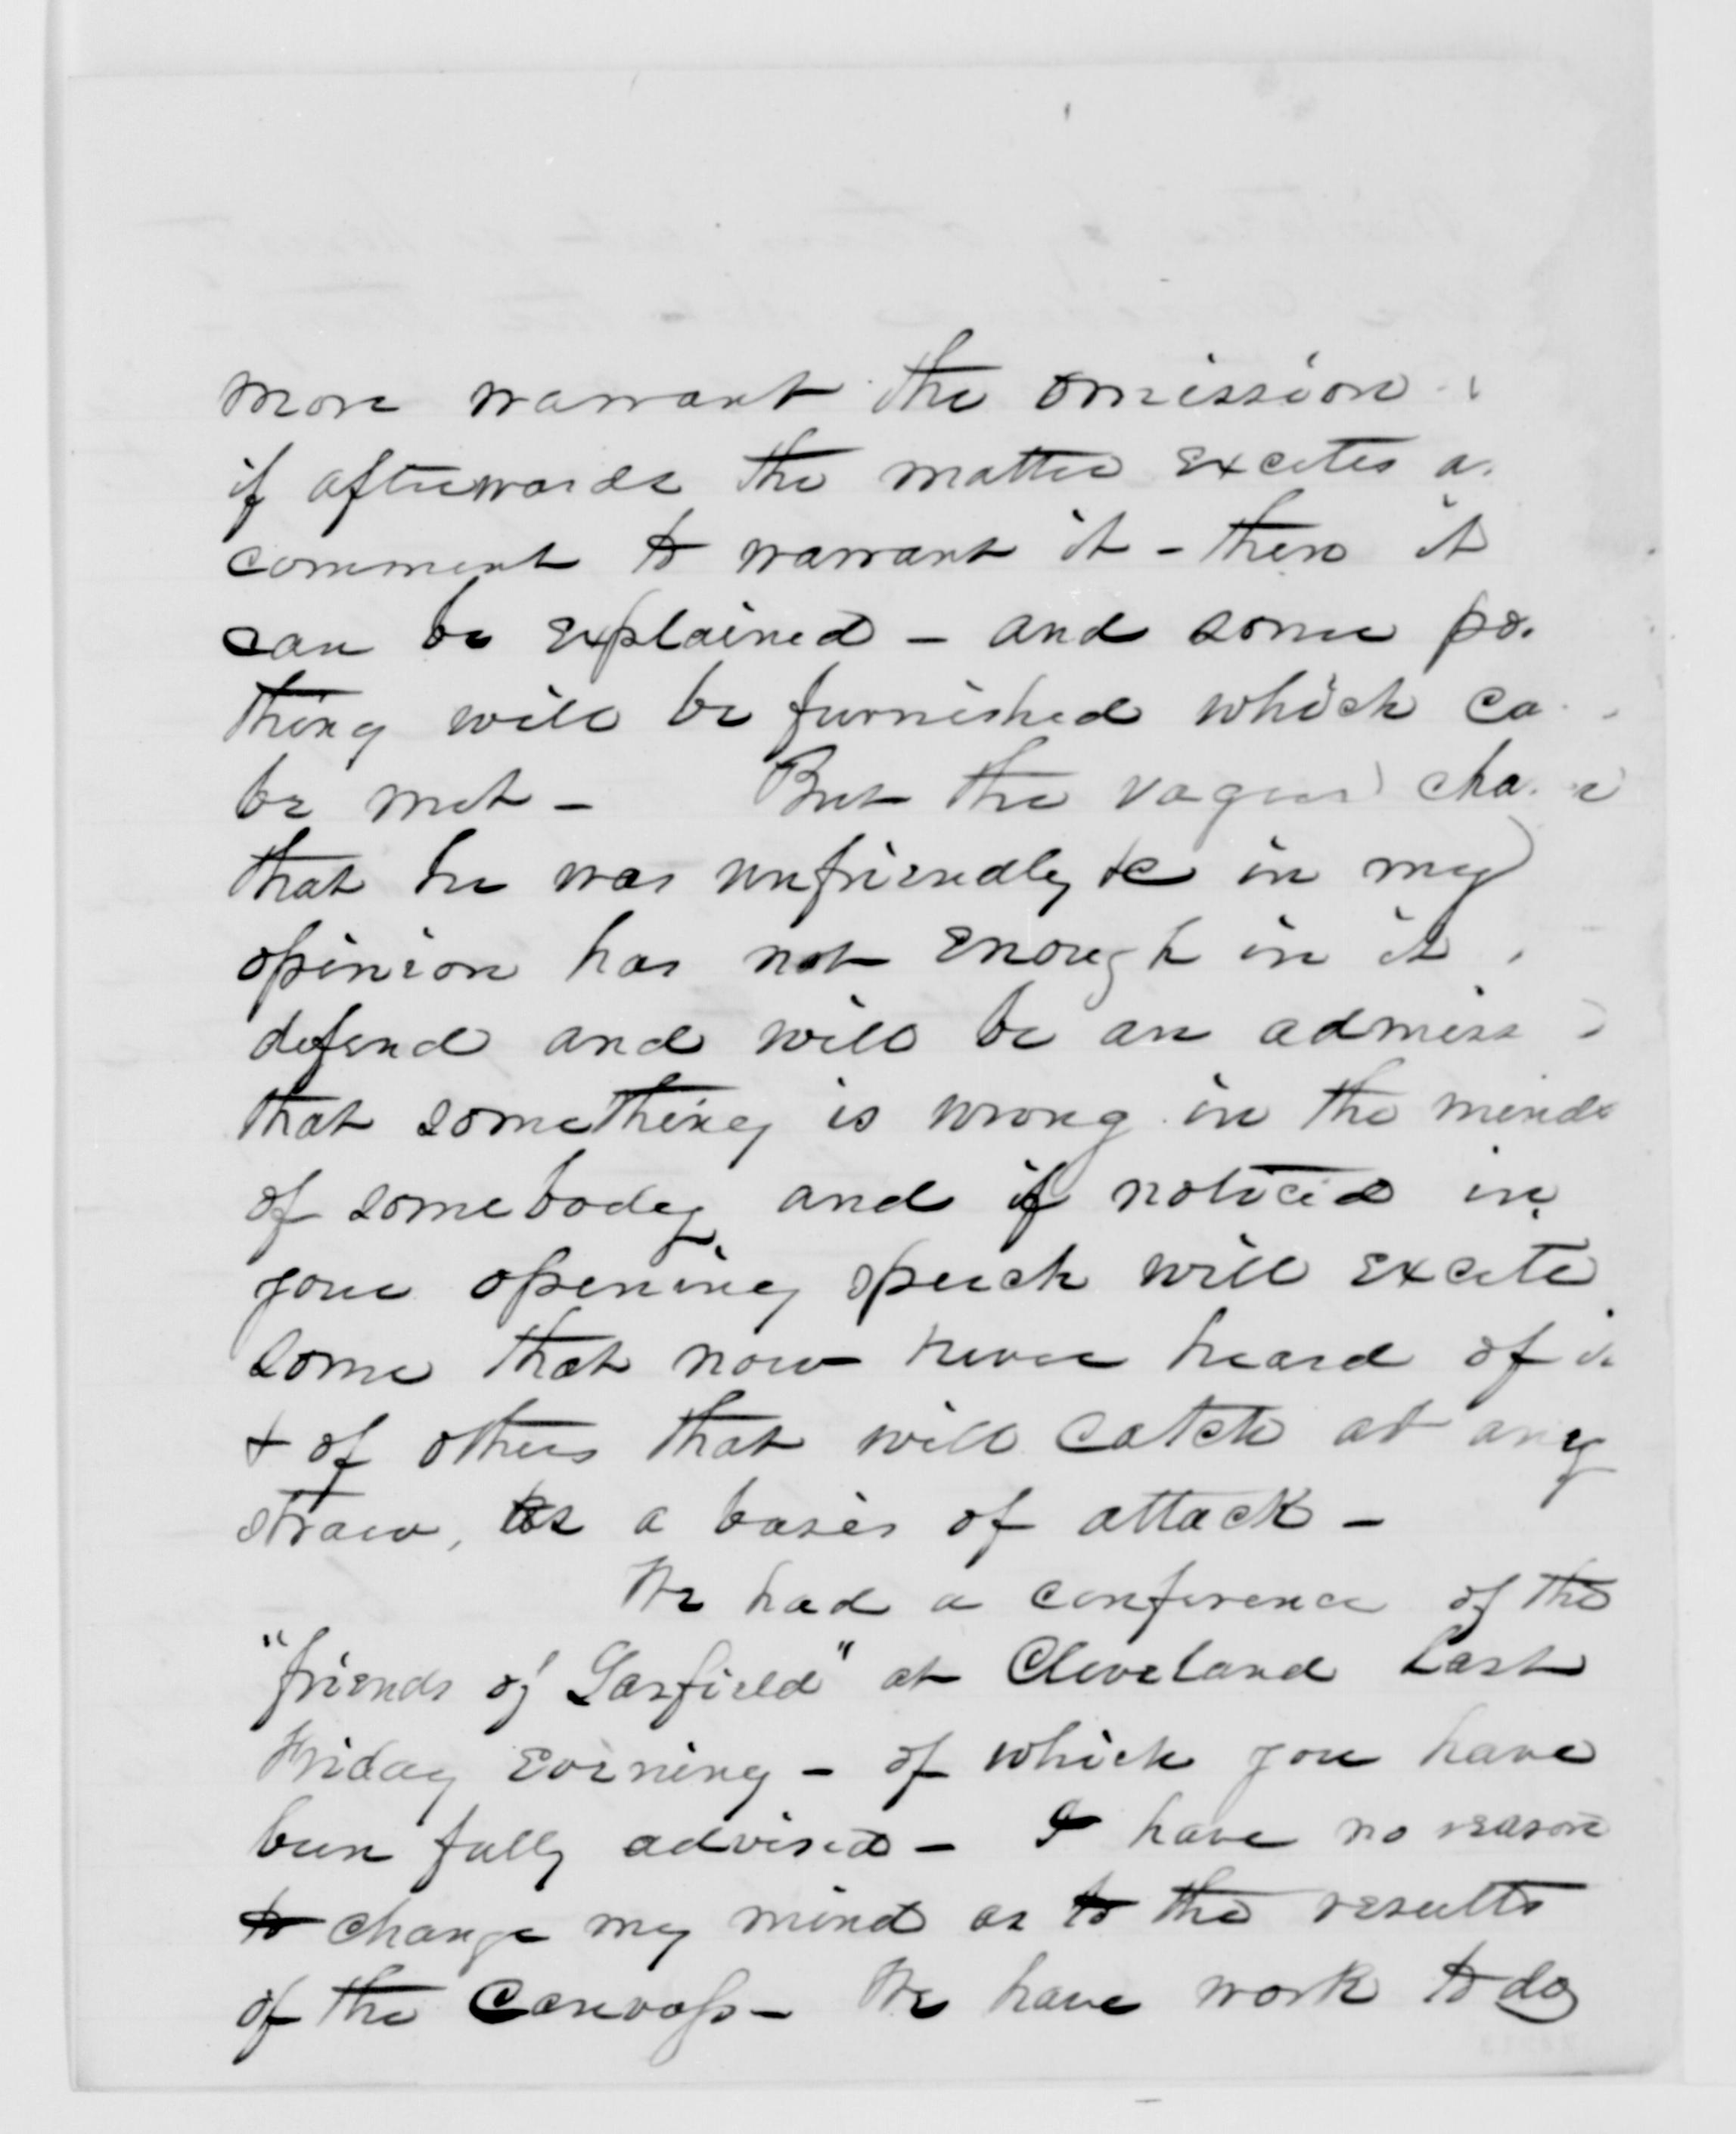 more warrant the omission
if afterwards the matter excites a
comment to warrant it - then it
can be explained - and some po
thing will be furnished which ca
be met - But the vague cha
that he was unfriendly &c in my
opinion has not enough in it
defend and will be an admiss
that something is wrong in the minds
of somebody and if noticed in
your opening speech will excite
some that now never heard of it
& of others that will catch at any
straw, as a basis of attack -
We had a conference of the
"friends of Garfield" at Cleveland last
Friday Evening - of which you have
been fully advised - I have no reason
to change my mind as to the results
of the Canvass - We have work to do